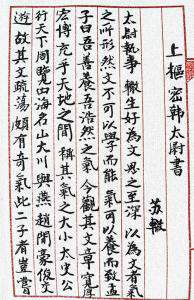 上樞密韓太尉書
苏轍
太尉執事轍生好為文思之至深以為文者氣
之所形然文不可以學而能氣可以養而致孟
子曰吾善養吾浩然之氣今觀其文章寬厚
宏博充乎天地之間稱其氣之大小太史公
行天下周覽四海名山大川與燕趙間豪俊交
遊故其文疏蕩頗有奇氣此二子者豈嘗